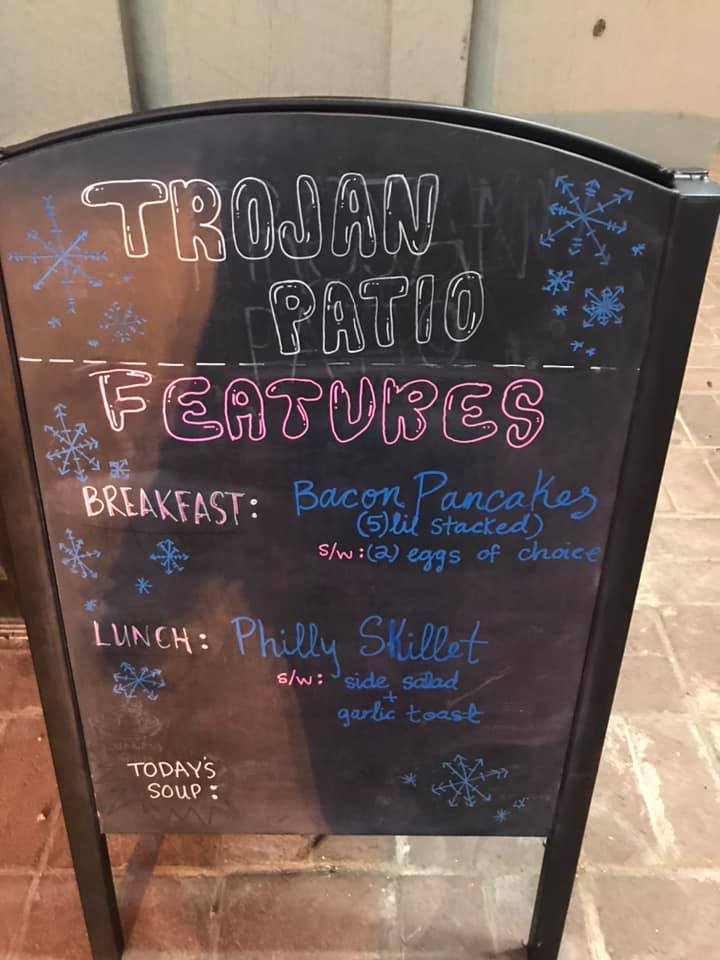 TROJAN
PATIO
FEATURES
BREAKFAST: Bacon Pancakes
(5)lil stacked)
s/w:(2) eggs of choice
LUNCH: Philly Skillet
s/w: side salad
+
garlic toast
TODAY'S
SOUP: